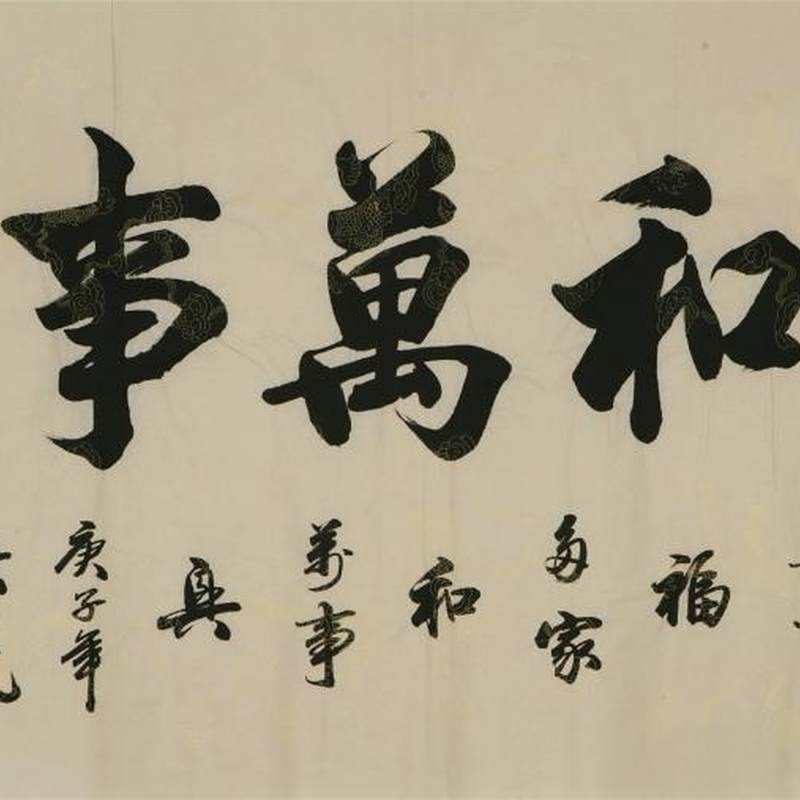 和萬事
福
多家
和
萬事
興
庚子年